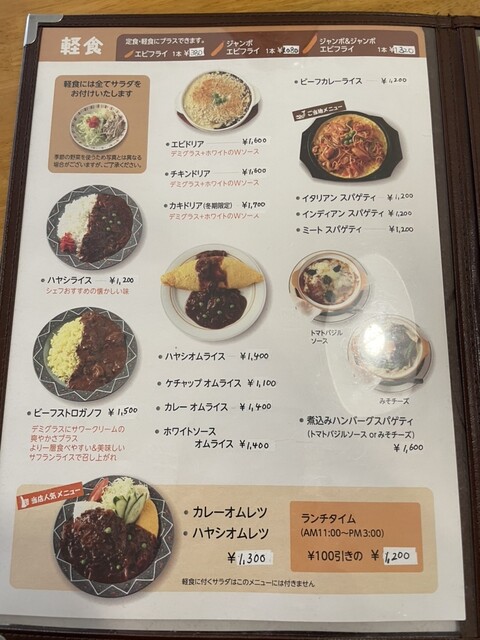 軽食
定食・軽食にプラスできます。
エビフライ 1本 ¥380
ジャンボ
エビフライ 1本 ¥1080
ジャンボ&ジャンボ
エビフライ 1本 ¥1320
軽食には全てサラダを
お付けいたします
季節の野菜を使うため写真とは異なる
場合がございますが、ご了承ください。
・エビドリア ¥1,600
デミグラス+ホワイトのWソース
・チキンドリア ¥1,600
デミグラス+ホワイトのWソース
・カキドリア(冬期限定) ¥1,700
デミグラス+ホワイトのWソース
・ビーフカレーライス ¥1,200
ご当地メニュー
・イタリアン スパゲティ ¥1,200
・インディアン スパゲティ ¥1,200
・ミート スパゲティ ¥1,200
・ハヤシライス ¥1,200
シェフおすすめの懐かしい味
・ハヤシオムライス ¥1,400
・ケチャップ オムライス ¥1,100
・カレー オムライス ¥1,400
・ホワイトソース
オムライス ¥1,400
トマトバジル
ソース
みそチーズ
・煮込みハンバーグスパゲティ
(トマトバジルソース or みそチーズ)
¥1,600
・ビーフストロガノフ ¥1,500
デミグラスにサワークリームの
爽やかさプラス
より一層食べやすい&美味しい
サフランライスで召し上がれ
当店人気メニュー
・カレーオムレツ
・ハヤシオムレツ
¥1,300
ランチタイム
(AM11:00〜PM3:00)
¥100引きの ¥1,200
軽食に付くサラダはこのメニューには付きません